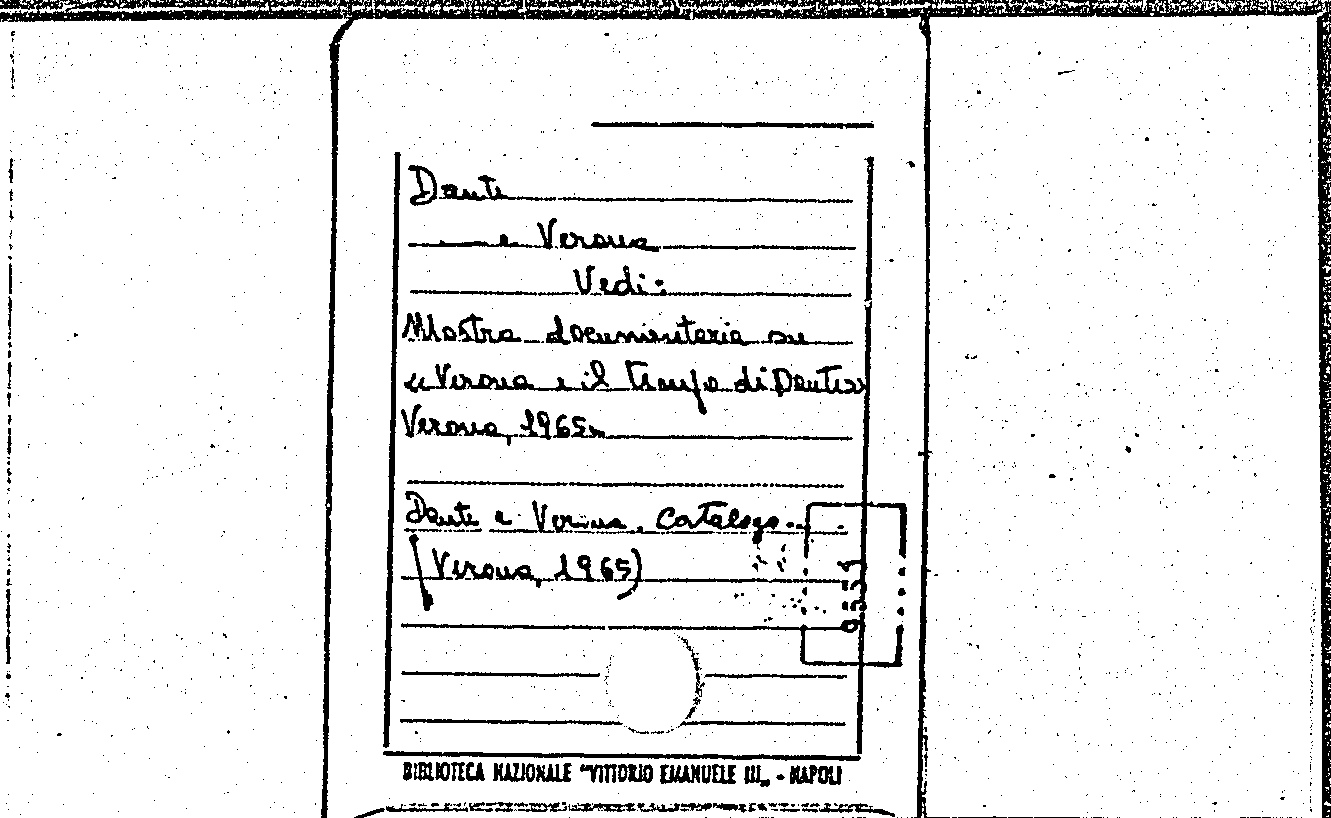 Dante
— e Verona
Vedi:
Mostra documentaria su
« Verona e il tempo di Dante»
Verona, 1965.
Dante e Verona. Catalogo...
(Verona, 1965)
BIBLIOTECA NAZIONALE "VITTORIO EMANUELE III„ - NAPOLI